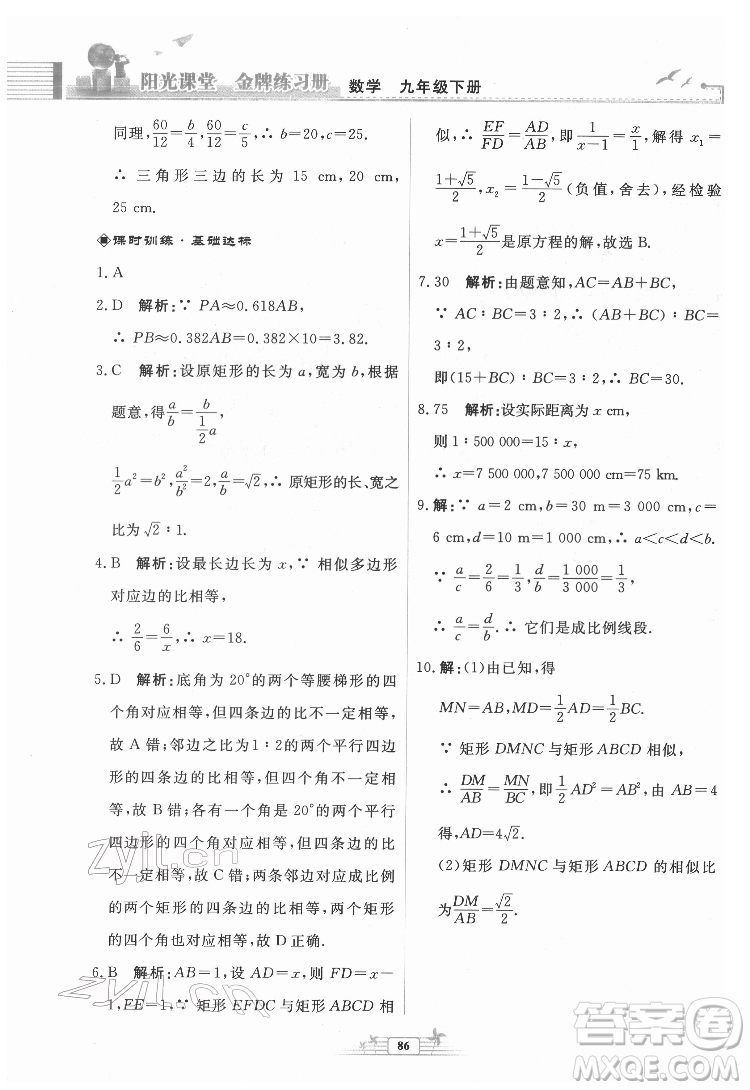 阳光课堂 金牌练习册 数学 九年级下册
同理,60/12=b/4,60/12=c/5,∴ b=20,c=25.
∴ 三角形三边的长为 15 cm,20 cm,
25 cm.
课时训练·基础达标
1. A
2. D 解析:∵ PA≈0.618AB,
∴ PB≈0.382AB=0.382×10=3.82.
3. C 解析:设原矩形的长为 a,宽为 b,根据
题意,得a/b=b/(1/2 a),
1/2 a²=b²,a²/b²=2,a/b=√2,∴ 原矩形的长、宽之
比为 √2∶1.
4. B 解析:设最长边长为 x,∵ 相似多边形
对应边的比相等,
∴ 2/6=6/x,∴ x=18.
5. D 解析:底角为 20°的两个等腰梯形的四
个角对应相等,但四条边的比不一定相等,
故 A 错;邻边之比为1∶2的两个平行四边
形的四条边的比相等,但四个角不一定相
等,故 B 错;各有一个角为 20°的两个平行
四边形的四个角对应相等,但四条边的比
不一定相等,故 C 错;两条邻边对应成比例
的两个矩形的四条边的比相等,两个矩形
的四个角也对应相等,故 D 正确.
6. B 解析:AB=1,设 AD=x,则 FD=x-
1,FE=1,∵ 矩形 EFDC 与矩形 ABCD 相
似,∴ EF/FD=AD/AB,即1/(x-1)=x/1,解得 x₁=
(1+√5)/2,x₂=(1-√5)/2(负值,舍去),经检验
x=(1+√5)/2是原方程的解,故选 B.
7. 30 解析:由题意知,AC=AB+BC,
∵ AC∶BC=3∶2,∴ (AB+BC)∶BC=3∶2,
即(15+BC)∶BC=3∶2,∴ BC=30.
8. 75 解析:设实际距离为 x cm,
则1∶500 000=15∶x,
∴ x=7 500 000,7 500 000 cm=75 km.
9. 解:∵ a=2 cm,b=30 m=3 000 cm,c=
6 cm,d=10 m=1 000 cm,∴ a<c<d<b.
∵ a/c=2/6=1/3,d/b=1 000/3 000=1/3,
∴ a/c=d/b.∴ 它们是成比例线段.
10. 解:(1)由已知,得
MN=AB,MD=1/2AD=1/2BC.
∵ 矩形 DMNC 与矩形 ABCD 相似,
∴ DM/AB=MN/BC,即1/2AD²=AB²,∵ AB=4
得,AD=4√2.
(2)矩形 DMNC 与矩形 ABCD 的相似比
为DM/AB=√2/2.
86
zyjl.cn
zyjl.cn
答案卷
MXQE.COM